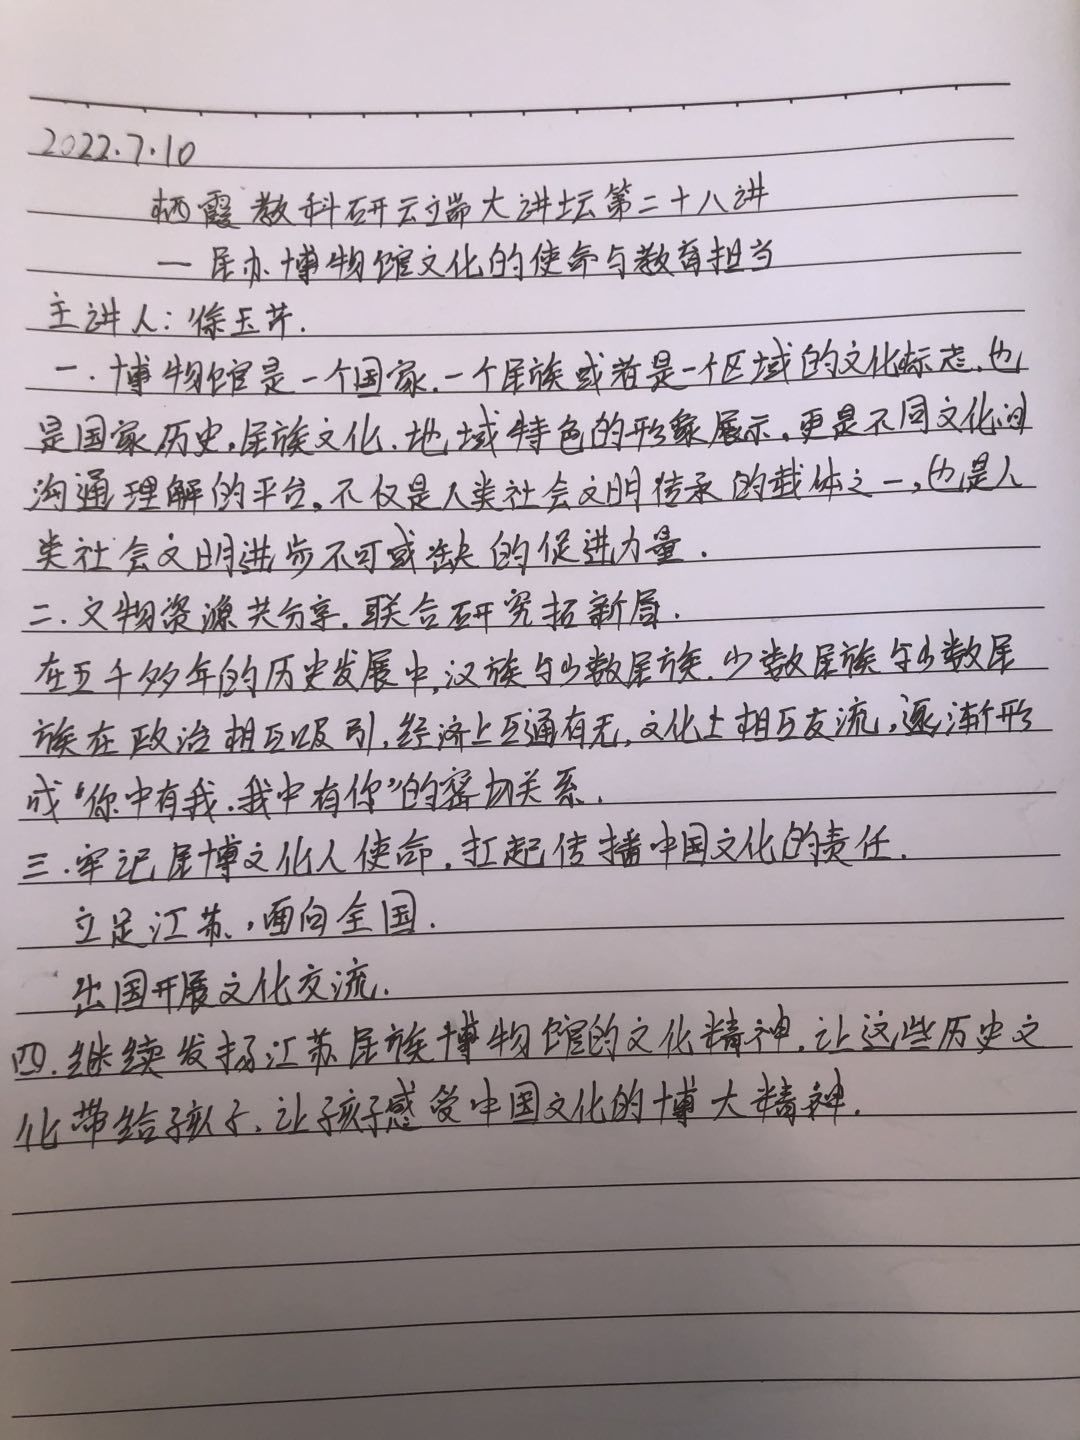 2022.7.10
栖霞教科研云端大讲坛第二十八讲
一民办博物馆文化的使命与教育担当
主讲人:徐玉芹.
一.博物馆是一个国家.一个民族或者是一个区域的文化标志、也
是国家历史,民族文化.地域特色的形象展示,更是不同文化间
沟通理解的平台。不仅是人类社会文明传承的载体之一,也是人
类社会文明进步不可或缺的促进力量.
二.文物资源共分享.联合研究拓新局.
在五千多年的历史发展中,汉族与少数民族.少数民族与少数民
族在政治相互吸引,经济上互通有无,文化上相互交流,逐渐形
成“你中有我.我中有你”的密切关系.
三.牢记民博文化人使命.扛起传播中国文化的责任.
立足江苏,面向全国.
出国开展文化交流.
四.继续发扬江苏民族博物馆的文化精神.让这些历史文
化带给孩子、让孩子感受中国文化的博大精神.